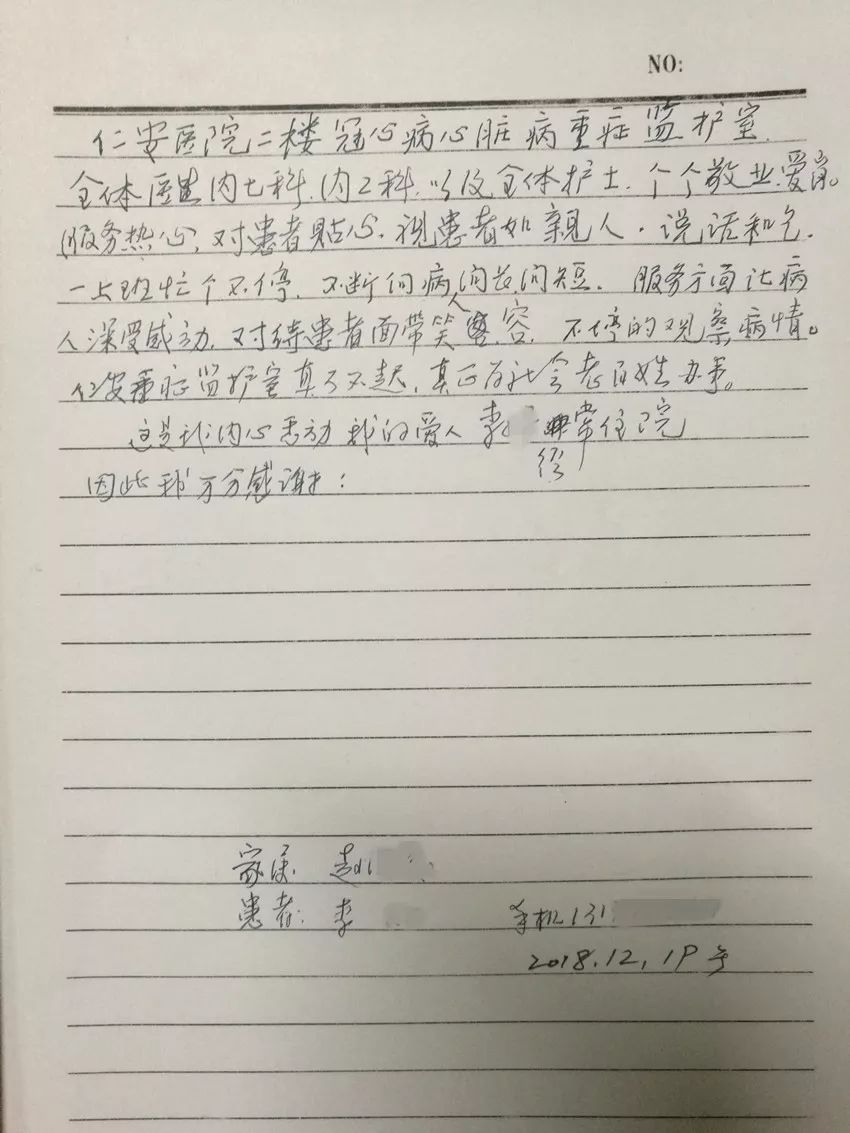 NO:
仁安医院二楼冠心病心脏病重症监护室.
全体医生内七科.内2科.以及全体护士.个个敬业.爱岗。
服务热心,对患者贴心.视患者如亲人.说话和气.
一上班忙个不停.不断问病人问长问短.服务方面让病
人深受感动.对待患者面带笑容.不停的观察病情。
仁安重症监护室真了不起.真正为社会老百姓办事。
这是我内心感动我的爱人李 经常住院
因此我万分感谢:
家属 赵
患者: 李 手机131
2018.12,19号